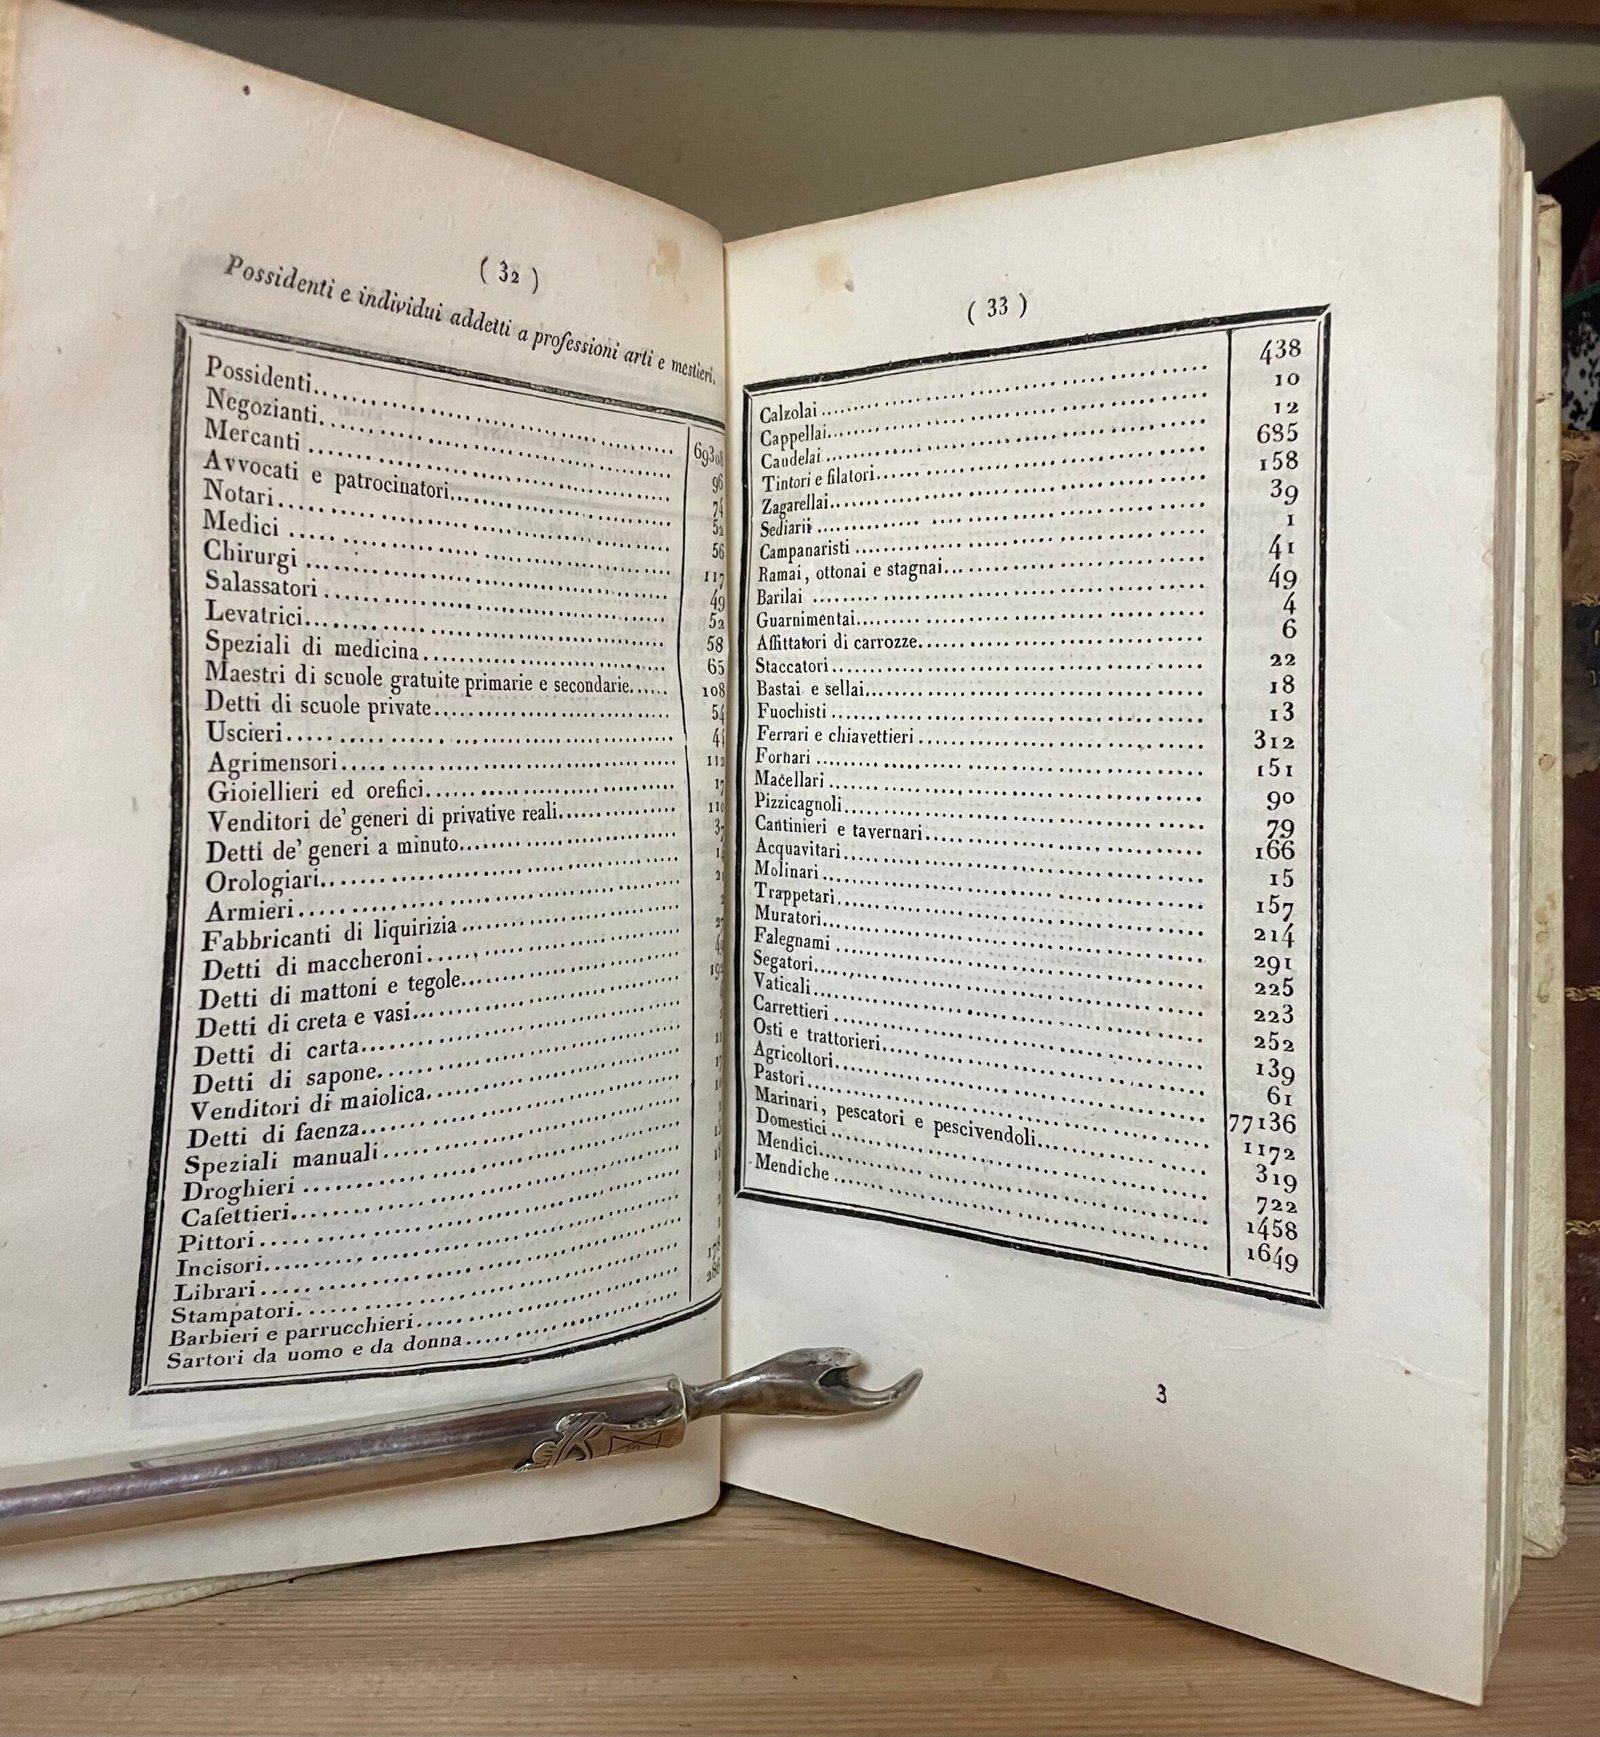 ( 32 )
Possidenti e individui addetti a professioni arti e mestieri.
Possidenti 69308
Negozianti 96
Mercanti 74
Avvocati e patrocinatori 52
Notari 56
Medici 117
Chirurgi 49
Salassatori 52
Levatrici 58
Speziali di medicina 65
Maestri di scuole gratuite primarie e secondarie 108
Detti di scuole private 54
Uscieri
Agrimensori 112
Gioiellieri ed orefici 17
Venditori de' generi di privative reali 110
Detti de' generi a minuto
Orologiari
Armieri
Fabbricanti di liquirizia
Detti di maccheroni
Detti di mattoni e tegole
Detti di creta e vasi
Detti di carta
Detti di sapone
Venditori di maiolica
Detti di faenza
Speziali manuali
Droghieri
Cafettieri
Pittori
Incisori
Librari
Stampatori
Barbieri e parrucchieri 178
Sartori da uomo e da donna 286
( 33 )
Calzolai 438
Cappellai 10
Candelai 12
Tintori e filatori 685
Zagarellai 158
Sediarii 39
Campanaristi 1
Ramai, ottonai e stagnai 41
Barilai 49
Guarnimentai 4
Affittatori di carrozze 6
Staccatori 22
Bastai e sellai 18
Fuochisti 13
Ferrari e chiavettieri 312
Fornari 151
Macellari 90
Pizzicagnoli 79
Cantinieri e tavernari 166
Acquavitari 15
Molinari 157
Trappetari 214
Muratori 291
Falegnami 225
Segatori 223
Vaticali 252
Carrettieri 139
Osti e trattorieri 61
Agricoltori 77136
Pastori 1172
Marinari, pescatori e pescivendoli 319
Domestici 722
Mendici 1458
Mendiche 1649
3